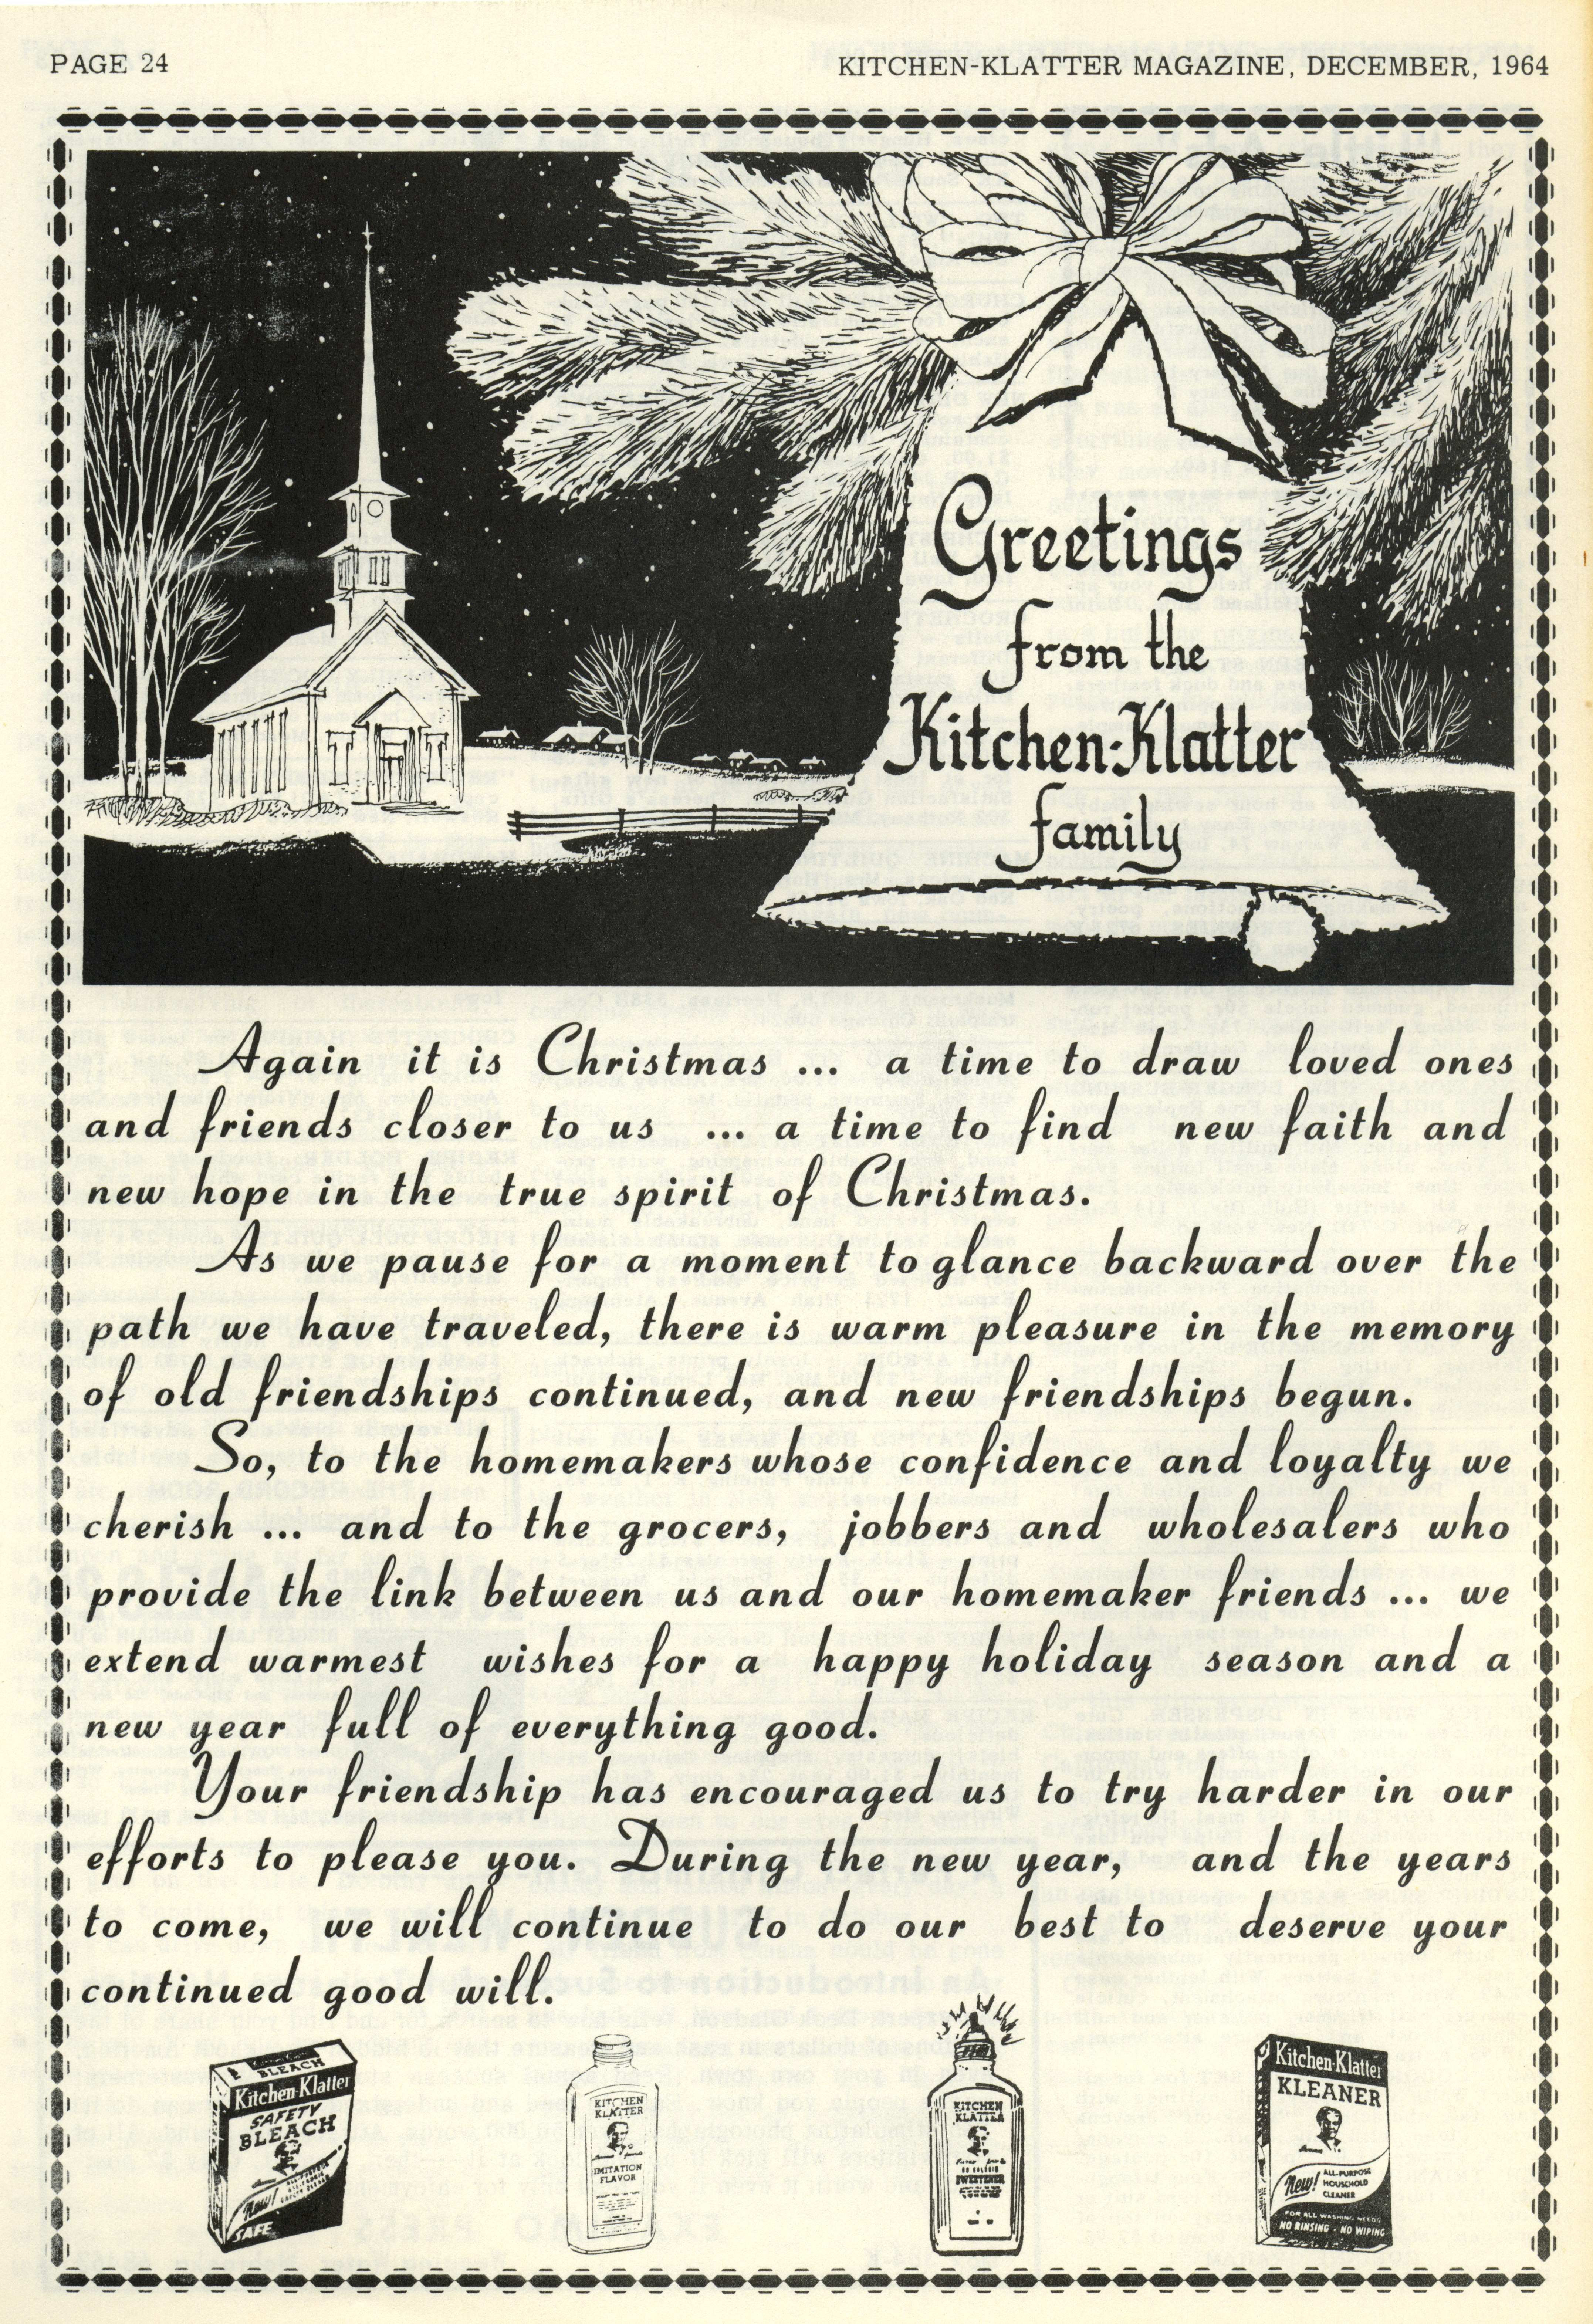 PAGE 24
KITCHEN-KLATTER MAGAZINE, DECEMBER, 1964
Greetings
from the
Kitchen-Klatter
family
Again it is Christmas ... a time to draw loved ones
and friends closer to us ... a time to find new faith and
new hope in the true spirit of Christmas.
As we pause for a moment to glance backward over the
path we have traveled, there is warm pleasure in the memory
of old friendships continued, and new friendships begun.
So, to the homemakers whose confidence and loyalty we
cherish ... and to the grocers, jobbers and wholesalers who
provide the link between us and our homemaker friends ... we
extend warmest wishes for a happy holiday season and a
new year full of everything good.
Your friendship has encouraged us to try harder in our
efforts to please you. During the new year, and the years
to come, we will continue to do our best to deserve your
continued good will.
BLEACH
Kitchen-Klatter
SAFETY
BLEACH
New!
SAFE
KITCHEN
KLATTER
IMITATION
FLAVOR
KITCHEN
KLATTER
SWEETENER
Kitchen-Klatter
KLEANER
New! ALL-PURPOSE
HOUSEHOLD
CLEANER
FOR ALL WASHING NEEDS
NO RINSING - NO WIPING